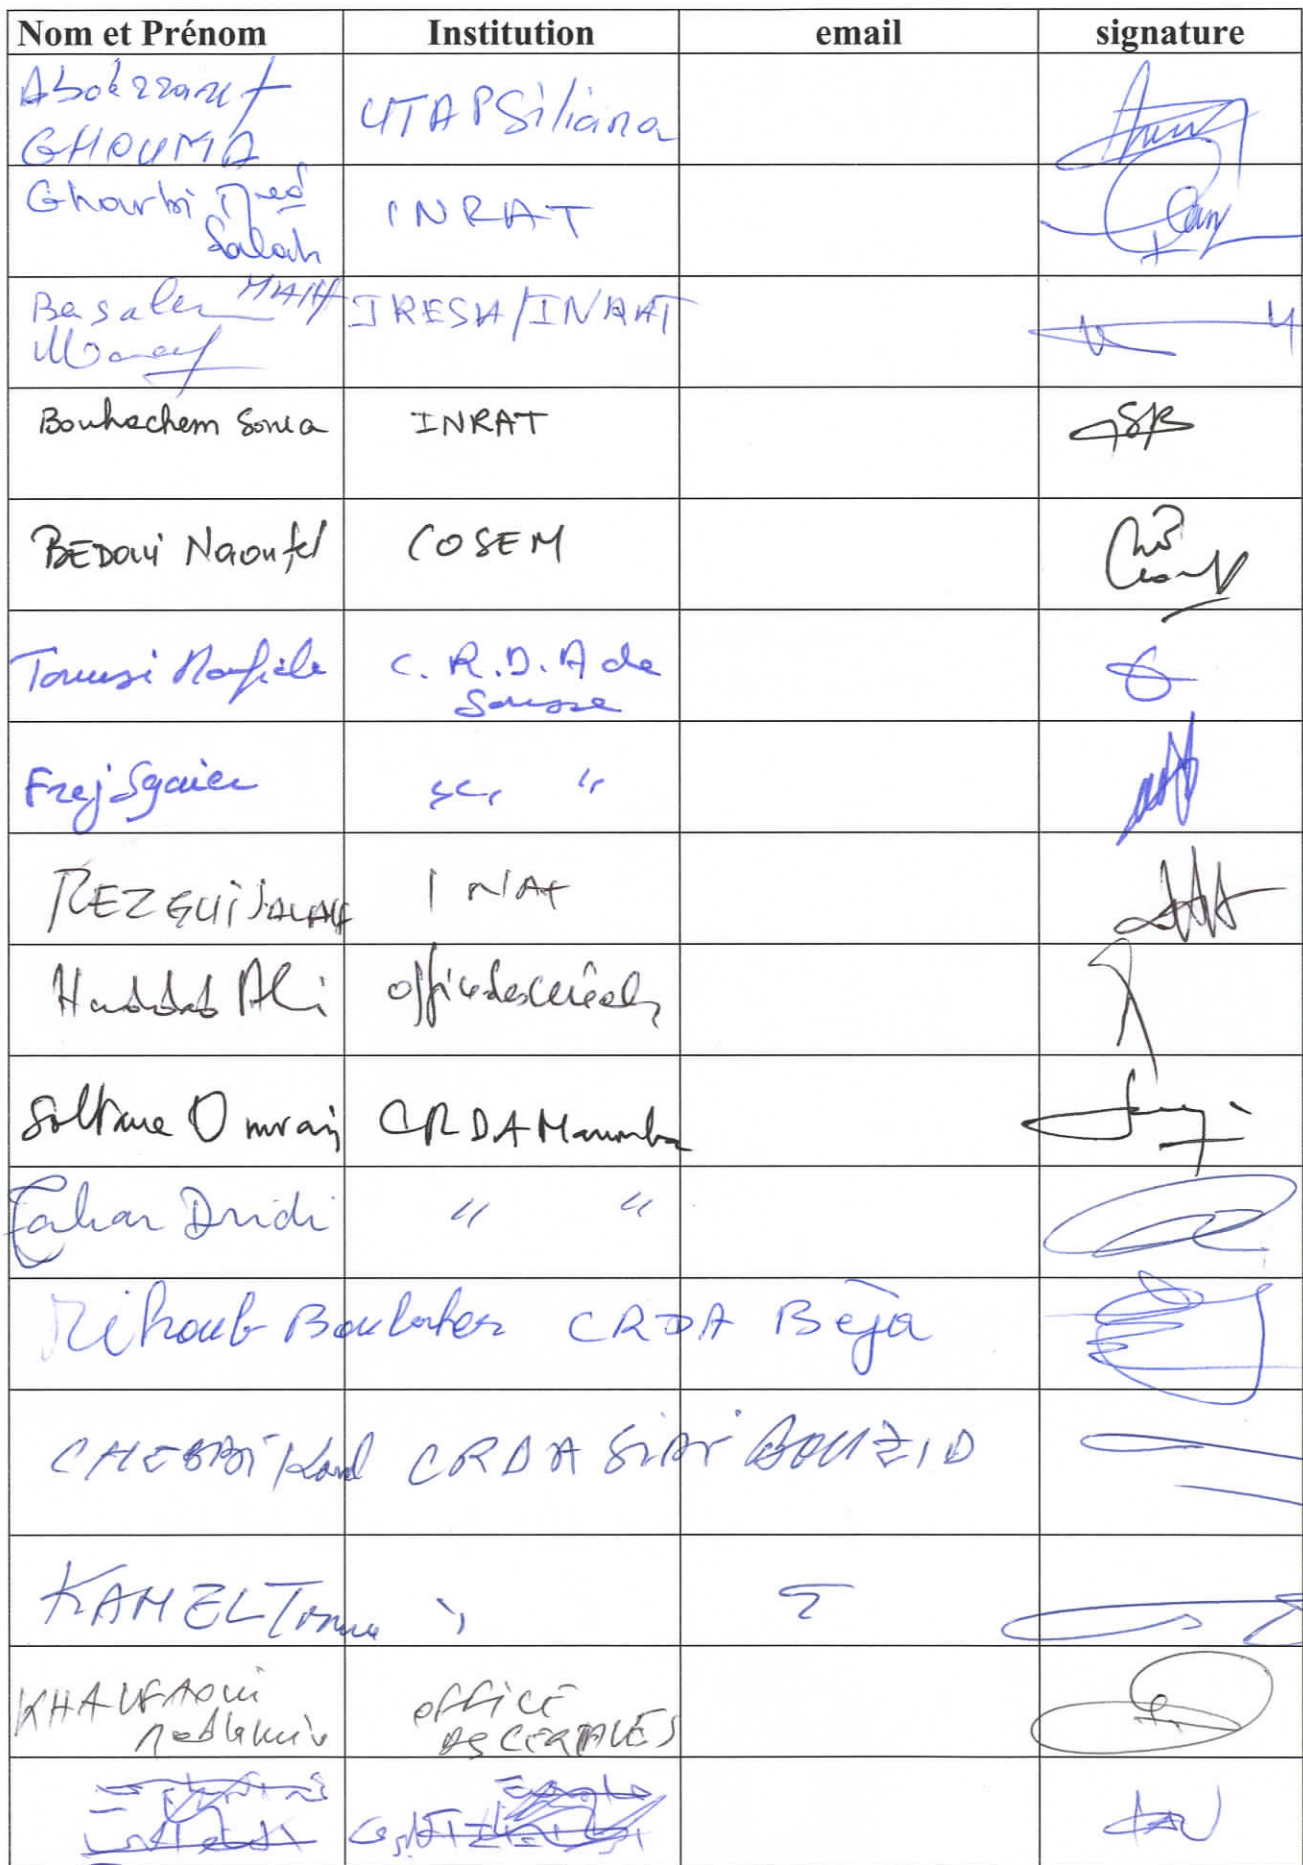 Nom et Prénom Institution email signature
Abderrazek UTAP Siliana
GHOUMA
Gharbi Med INRAT
Salah
Ben Salem IRESA/INRAT
Bouhachem Sonia INRAT
BEDOUi Naoufel COSEM
Tounsi C.R.D.A de
Sousse
Frej Sgaier " "
REZGUI SALAH INAT
Haddad Ali office des céréales
Soltane Omrani CRDA Manouba
Tahar Dridi " "
Mihoub Boubaker CRDA Béja
CHEBBi CRDA SiDi BOUZID
KAMEL "
KHALFAOUi OFFICE
DES CEREALES